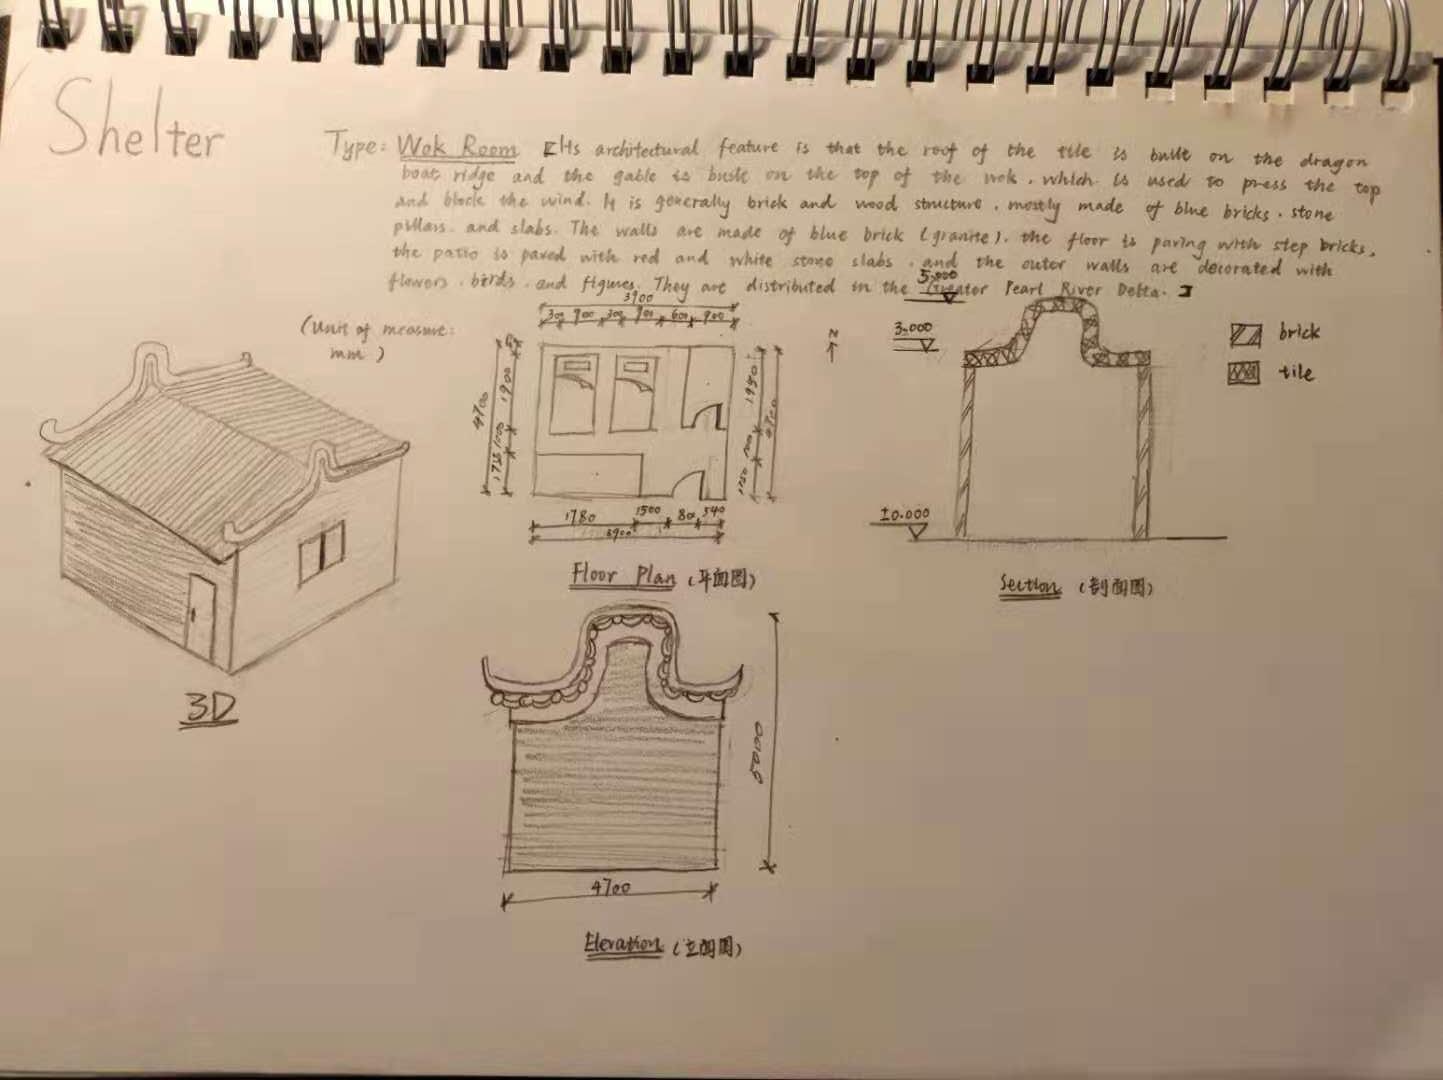 Shelter
Type: Wok Room 【Its architectural feature is that the roof of the tile is built on the dragon
boat ridge and the gable is built on the top of the wok, which is used to press the top
and block the wind. It is generally brick and wood structure, mostly made of blue bricks, stone
pillars, and slabs. The walls are made of blue brick (granite), the floor is paving with step bricks,
the patio is paved with red and white stone slabs, and the outer walls are decorated with
flowers, birds, and figures. They are distributed in the Greater Pearl River Delta.】
(Unit of measure:
mm)
3D
3900
300 900 300 900 600 900
4700
1900
1000
N
1780 1500 540
3900
Floor Plan (平面图)
5.000
3.000
±0.000
Section (剖面图)
brick
tile
5000
4700
Elevation (立面图)